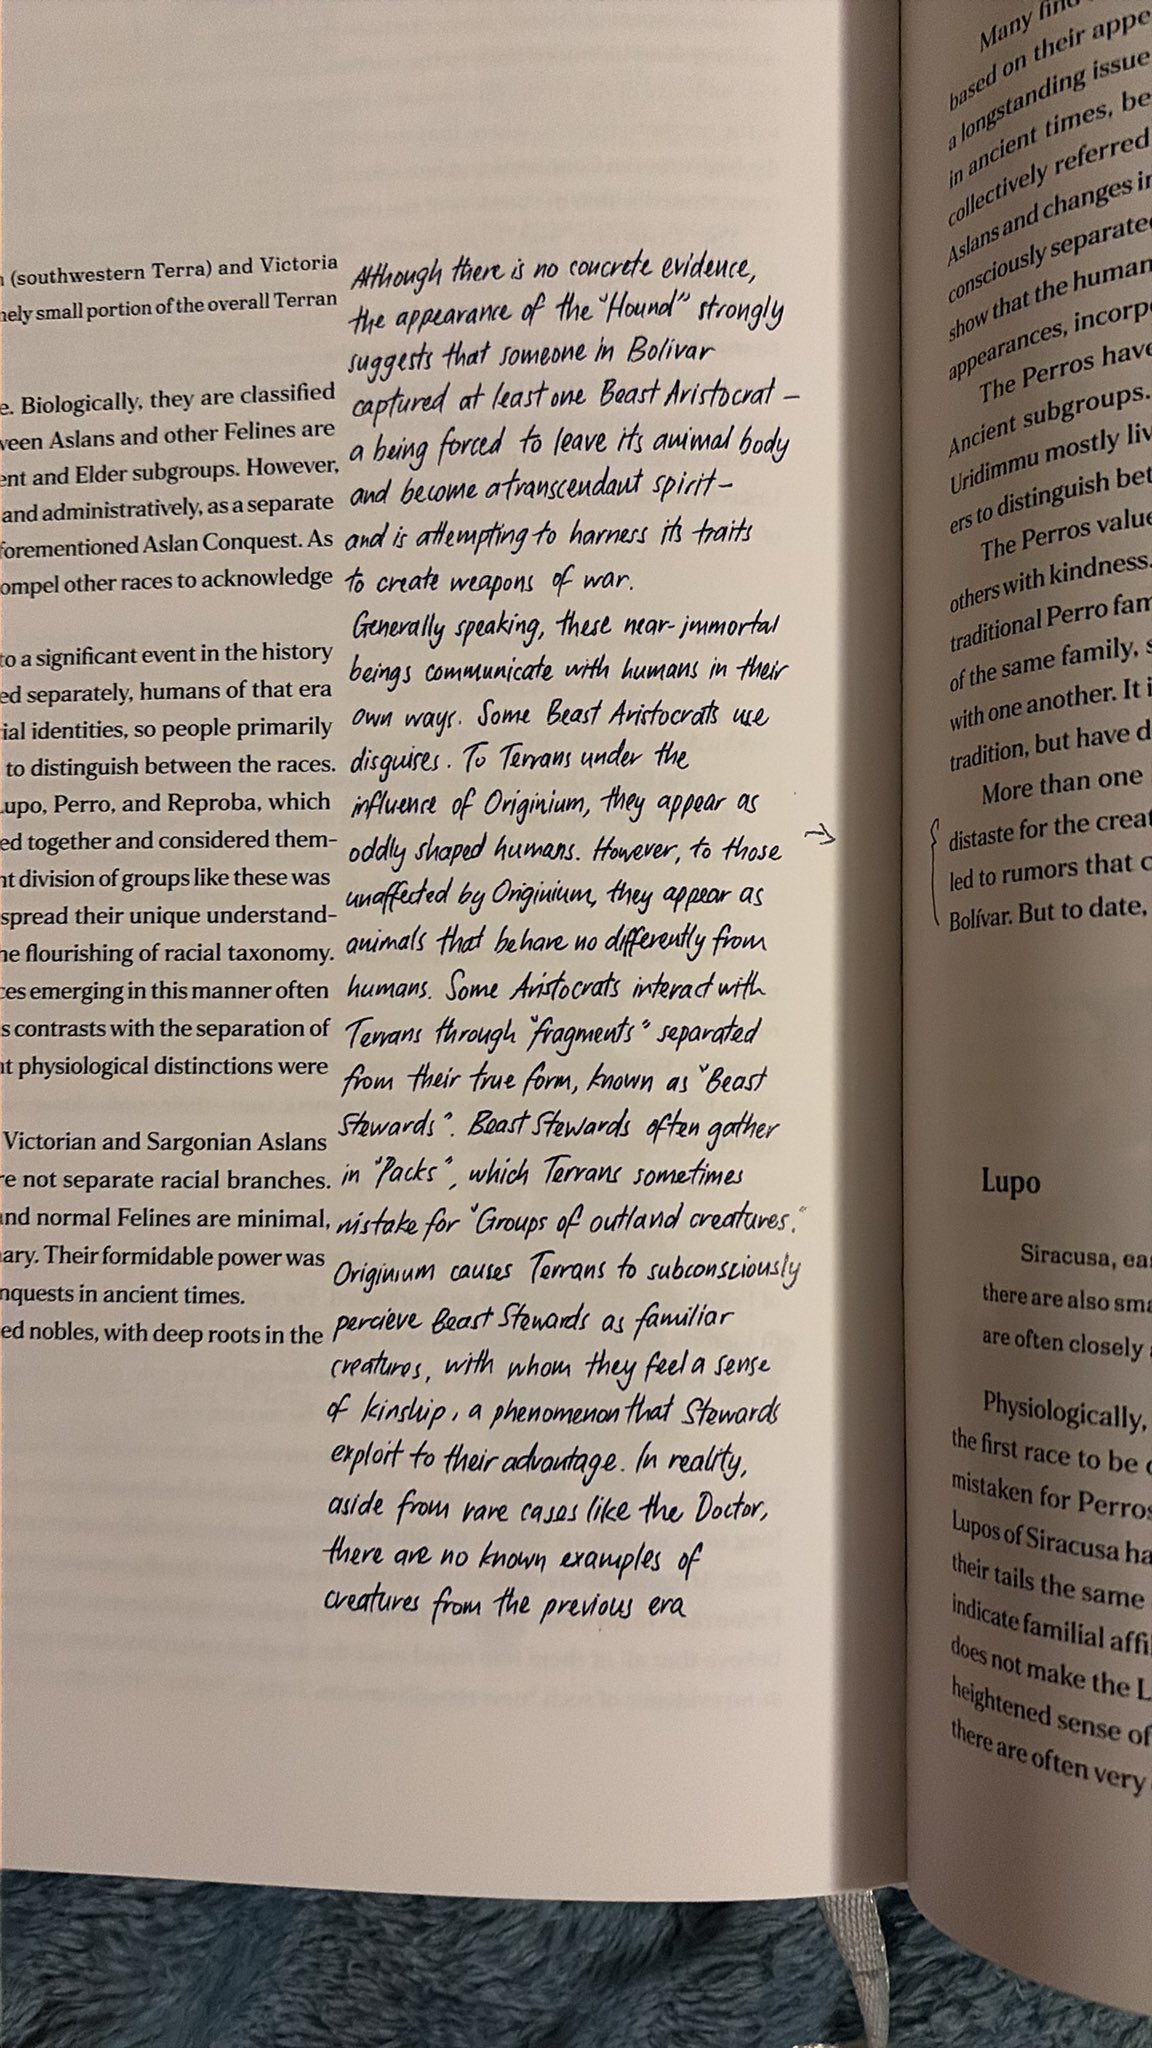 (southwestern Terra) and Victoria
small portion of the overall Terran
Biologically, they are classified
Aslans and other Felines are
and Elder subgroups. However,
and administratively, as a separate
Aslan Conquest. As
other races to acknowledge
to a significant event in the history
separately, humans of that era
identities, so people primarily
to distinguish between the races.
Lupo, Perro, and Reproba, which
together and considered them-
division of groups like these was
spread their unique understand-
flourishing of racial taxonomy.
emerging in this manner often
contrasts with the separation of
physiological distinctions were
Victorian and Sargonian Aslans
not separate racial branches.
and normal Felines are minimal,
Their formidable power was
in ancient times.
nobles, with deep roots in the
Although there is no concrete evidence,
the appearance of the "Hound" strongly
suggests that someone in Bolívar
captured at least one Beast Aristocrat –
a being forced to leave its animal body
and become a transcendant spirit –
and is attempting to harness its traits
to create weapons of war.
Generally speaking, these near-immortal
beings communicate with humans in their
own ways. Some Beast Aristocrats use
disguises. To Terrans under the
influence of Originium, they appear as
oddly shaped humans. However, to those
unaffected by Originium, they appear as
animals that behave no differently from
humans. Some Aristocrats interact with
Terrans through "fragments" separated
from their true form, known as "Beast
Stewards". Beast Stewards often gather
in "Packs", which Terrans sometimes
mistake for "Groups of outland creatures."
Originium causes Terrans to subconsciously
percieve Beast Stewards as familiar
creatures, with whom they feel a sense
of kinship, a phenomenon that Stewards
exploit to their advantage. In reality,
aside from rare cases like the Doctor,
there are no known examples of
creatures from the previous era
Many find
based on their
a longstanding issue
in ancient times,
collectively referred
Aslans and changes
consciously
show that the human
appearances,
The Perros have
Ancient subgroups.
Uridimmu mostly
ers to distinguish
The Perros value
others with kindness.
traditional Perro
of the same family,
with one another. It
tradition, but have
More than one
distaste for the
led to rumors that
Bolívar. But to date,
Lupo
Siracusa,
there are also
are often closely
Physiologically,
the first race to be
mistaken for Perros
Lupos of Siracusa
their tails the same
indicate familial
does not make the
heightened sense of
there are often very